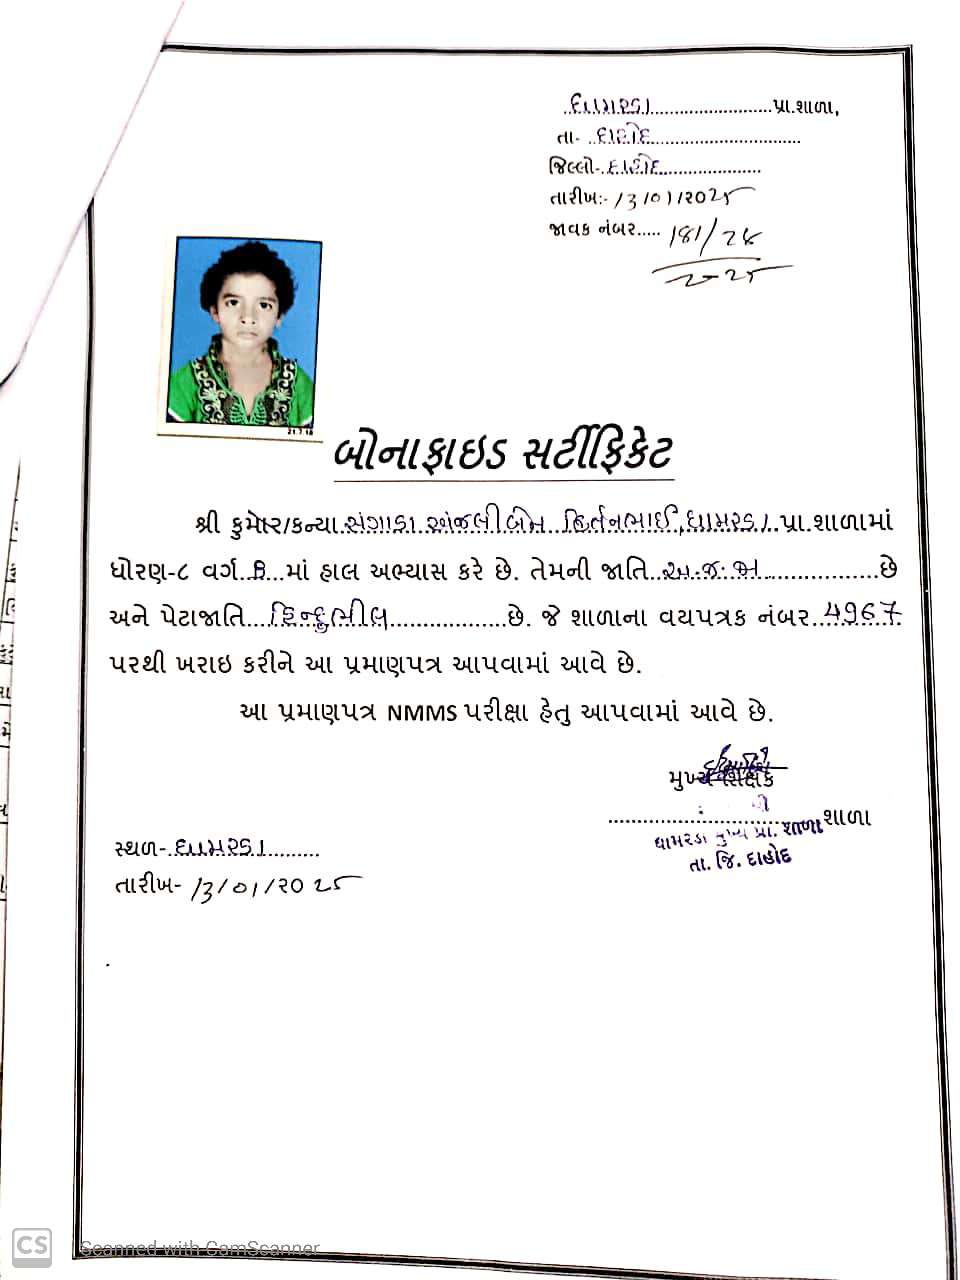 ધામરડા પ્રા.શાળા,
તા- દાહોદ
જિલ્લો- દાહોદ
તારીખ:- 13/01/2025
જાવક નંબર..... 181/24
2025
21.7.18
બોનાફાઇડ સર્ટીફિકેટ
શ્રી કુમાર/કન્યા સંગાડા અંજલીબેન કિર્તનભાઈ, ધામરડા પ્રા.શાળામાં
ધોરણ-૮ વર્ગ B માં હાલ અભ્યાસ કરે છે. તેમની જાતિ અ.જ.જા છે
અને પેટાજાતિ હિન્દુભીલ છે. જે શાળાના વયપત્રક નંબર 4967
પરથી ખરાઇ કરીને આ પ્રમાણપત્ર આપવામાં આવે છે.
આ પ્રમાણપત્ર NMMS પરીક્ષા હેતુ આપવામાં આવે છે.
મુખ્ય શિક્ષક
શાળા
ધામરડા મુખ્ય પ્રા. શાળા
તા. જિ. દાહોદ
સ્થળ- ધામરડા
તારીખ- 13/01/2025
CS Scanned with CamScanner